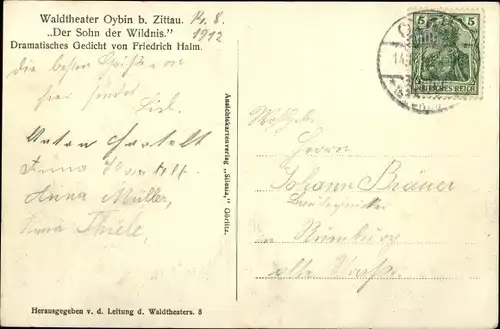 Waldtheater Oybin b. Zittau. 14.8.
1912
„Der Sohn der Wildnis."
Dramatisches Gedicht von Friedrich Halm.
die besten Grüße von
hier sendet
Anna Müller,
Thiele,
Herausgegeben v. d. Leitung d. Waldtheaters. 8
Ansichtskartenverlag „Silesia," Görlitz.
5 5
DEUTSCHES REICH
Herrn
Johann Bräuer
in Rumburg
alte Straße